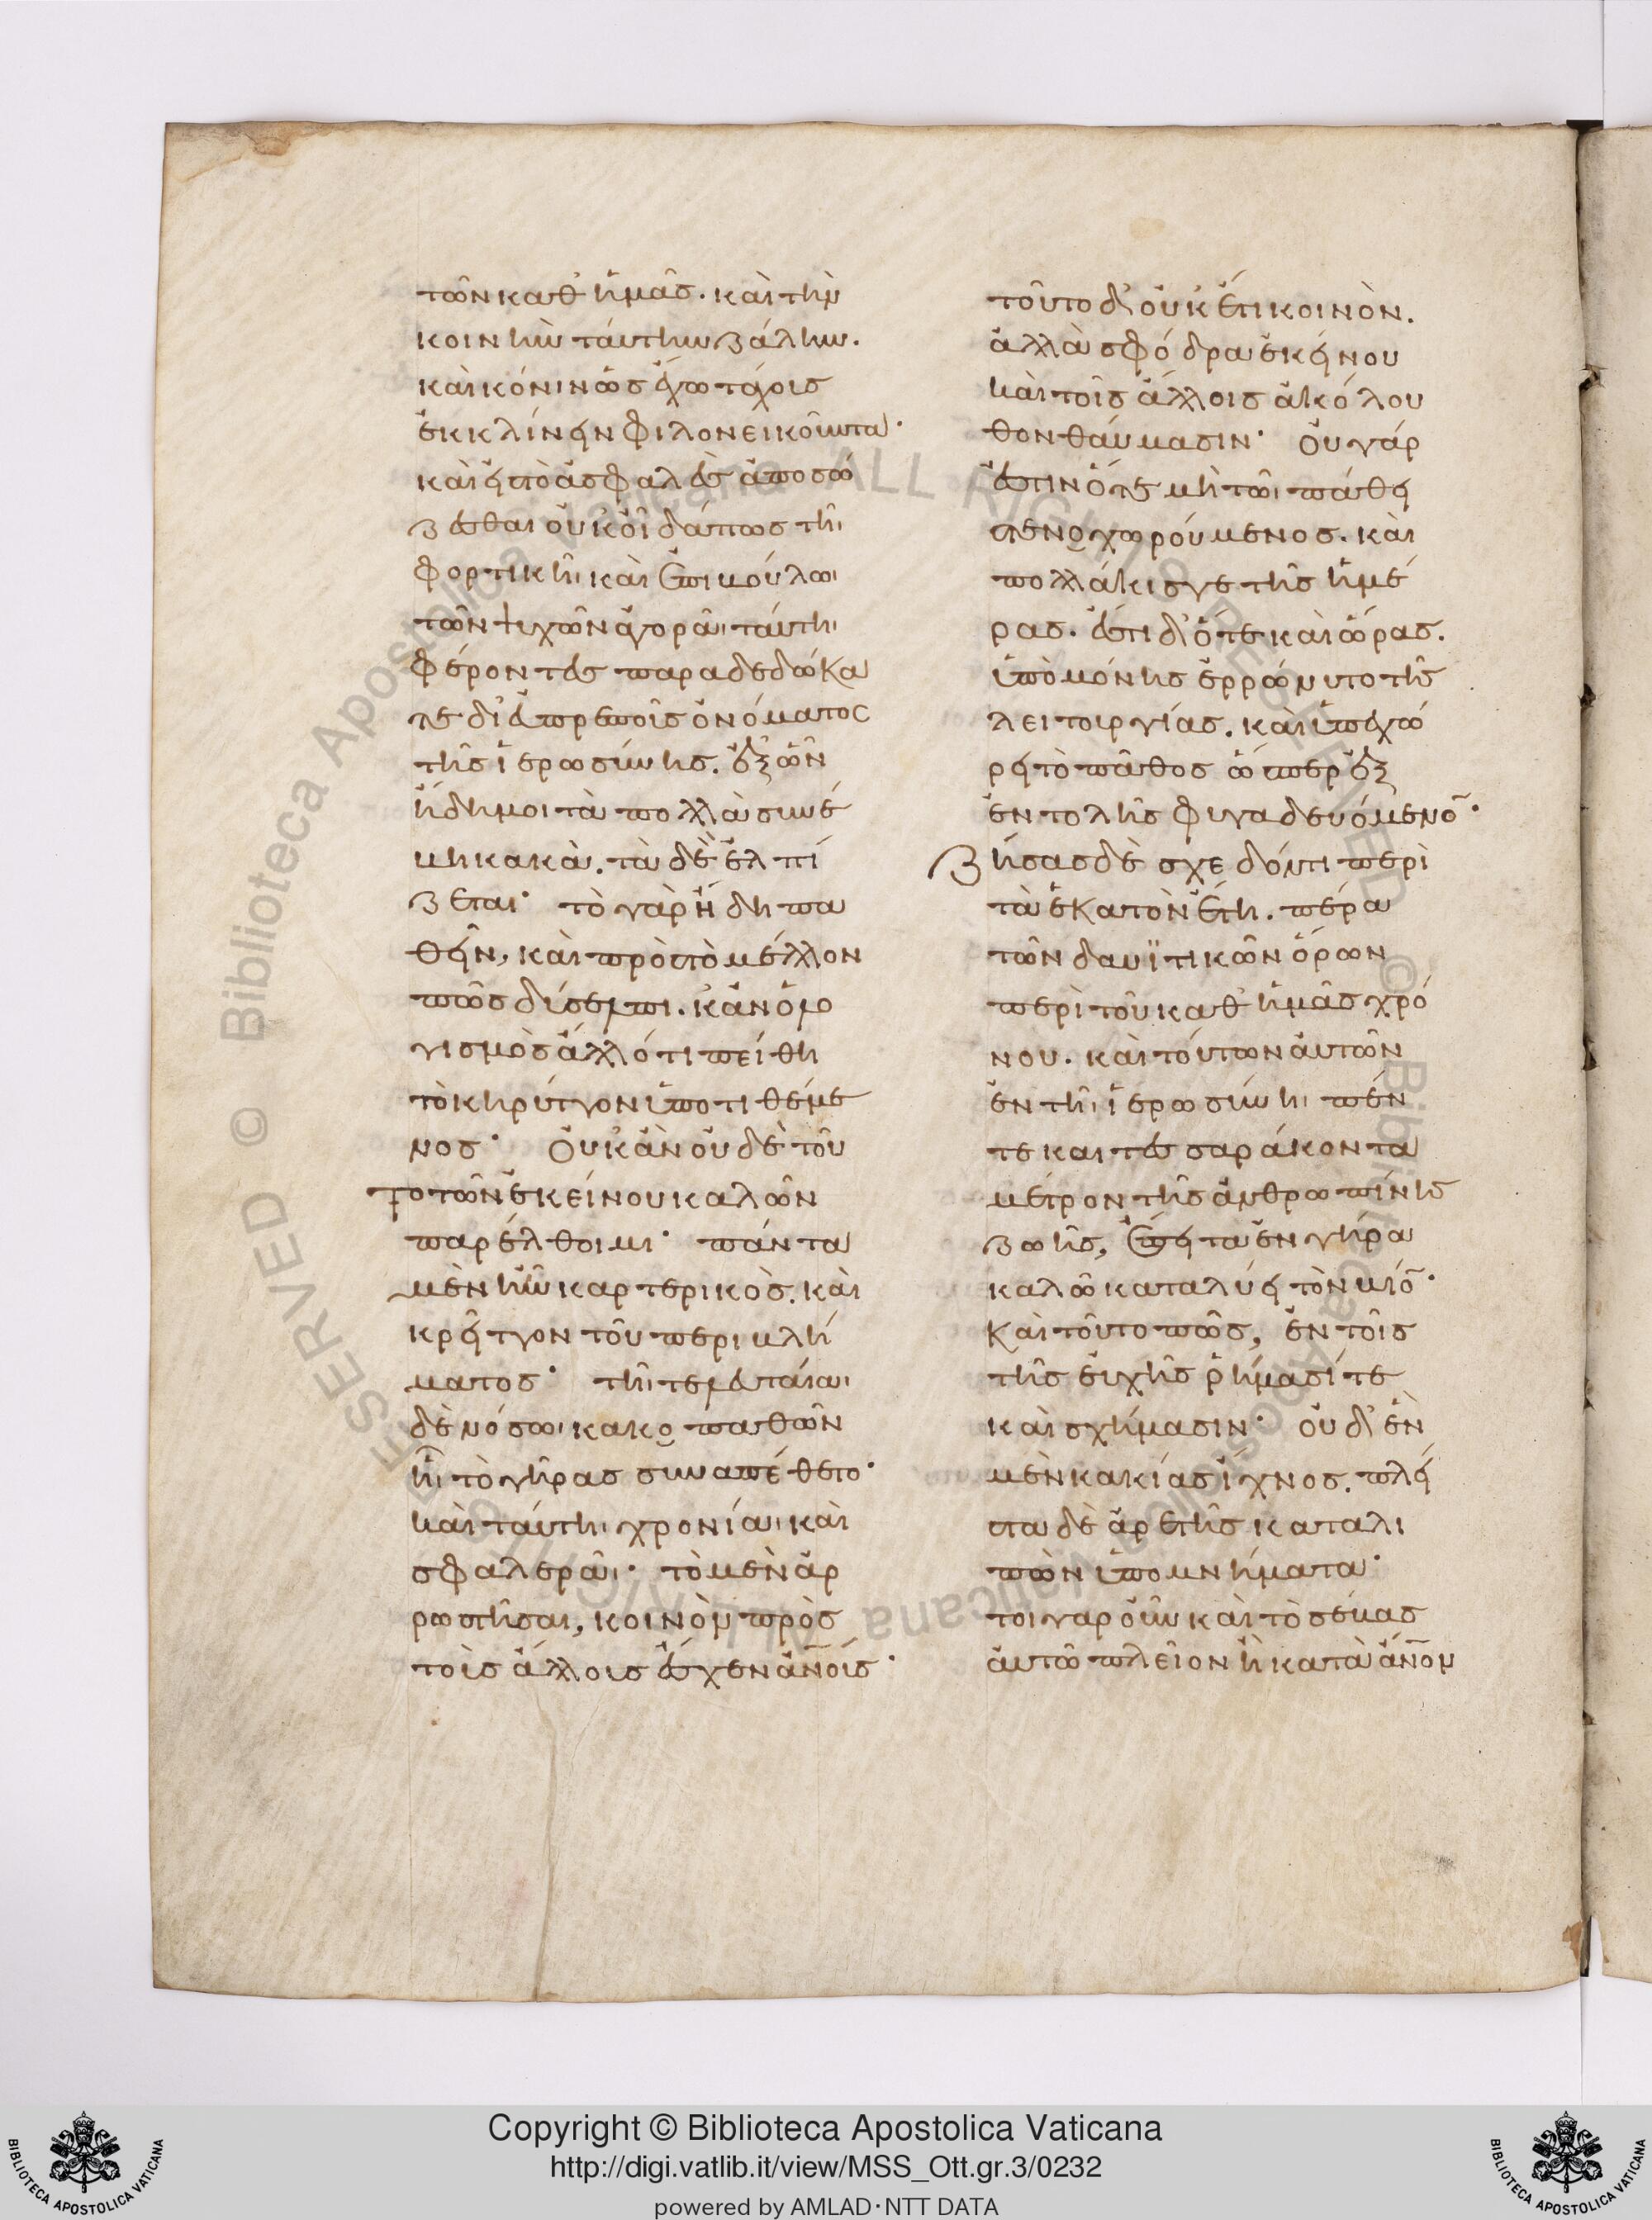 τῶν καθ' ἡμᾶσ. καὶ τὴν
κοινὴν ταύτην ζάλην.
καὶ κόνιν ὡσ ἔχω τάχουσ
ἐκκλίνειν φιλονεικοῦντα·
καὶ εἰσ τὸ ἀσφαλὲσ ἀποσώ
ζεσθαι οὐκ οἶδ' ὅπωσ τῆι
φορτικῆι καὶ ἐπιμούλωι
τῶν ψυχῶν ἀγορᾶι ταύτηι
φέροντεσ παραδεδώκα
τε δι' εὐπρεποῦσ ὀνόματοσ
τῆσ ἱερωσύνησ. ἐξ ὧν
ἤδη μοι τὰ πολλὰ συνέ
μη κακὰ. τὰ δὲ ἐλπί
ζεται· τὸ γὰρ ἤδη πα
θεῖν, καὶ πρὸσ τὸ μέλλον
πῶσ δύσελπι. κἂν ὁ λο
γισμὸσ ἄλλό τι πείθη
τὸ κρεῖττον ὑποτιθέμε
νοσ· Οὐκ ἂν οὐδὲ τοῦ
το τῶν ἐκείνου καλῶν
παρέλθοιμι· πάντα
μὲν ἦν καρτερικὸσ. καὶ
κρείττων τοῦ περιμλή
ματοσ· τῆι τελευταίαι
δὲ νόσωι κακοπαθῶν
ἣι τὸ γῆρασ συναπέθετο·
καὶ ταύτηι χρονίαι καὶ
σφαλερᾶι· τὸ μὲν ἀρ
ρωστῆσαι, κοινὸν πρὸσ
τοὺσ ἄλλουσ ἔσχεν ἀν̅οισ·
τοῦτο δ' οὐκέτι κοινὸν.
ἀλλὰ σφόδρα ἐκείνου
καὶ τοῖσ ἄλλοισ ἀκόλου
θον θαύμασιν· Οὐ γάρ
ἔστιν ὅτε μὴ τῶι πάθει
στενοχωρούμενοσ. καὶ
πολλάκισ γε τῆσ ἡμέ
ρασ. ἔστι δ' ὅτε καὶ ὥρασ.
ὑπὸ μόνησ ἐρρώννυτο τῆσ
λειτουργίασ. καὶ ὑπεχώ
ρει τὸ πάθοσ ὥσπερ ἐξ
ἐντολῆσ φυγαδευόμενο̅·
Ζήσασ δὲ σχεδόν τι περὶ
τὰ ἑκατὸν ἔτη. πέρα
τῶν δαυϊτικῶν ὅρων
περὶ τοῦ καθ' ἡμᾶσ χρό
νου. καὶ τούτων αὐτῶν
ἐν τῆι ἱερωσύνηι πέν
τε καὶ τεσσαράκοντα
μέτρον τῆσ ἀνθρωπίνησ
ζωῆσ, ἔπειτα ἐν γήρα
καλῶ καταλύει τὸν μίο̅·
Καὶ τοῦτο πῶσ, ἐν τοῖσ
τῆσ εὐχῆσ ῥήμασί τε
καὶ σχήμασιν· οὐδ' ἓν
μὲν κακίασ ἴχνοσ. πλεῖ
στα δὲ ἀρετῆσ καταλι
πὼν ὑπομνήματα·
τοιγαροῦν καὶ τὸ σέμασ
αὐτῶ πλεῖον ἢ κατὰ ἄν̅ον
Copyright © Biblioteca Apostolica Vaticana
http://digi.vatlib.it/view/MSS_Ott.gr.3/0232
powered by AMLAD·NTT DATA